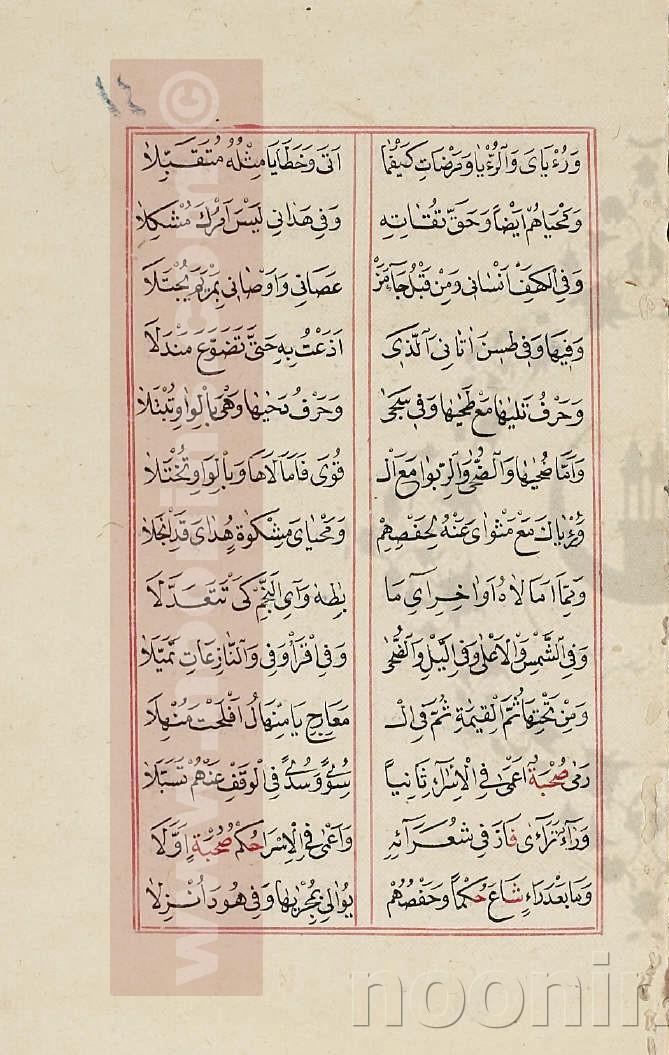 ١٤
وَرُءْيَايَ وَالرُّءْيَا وَمَرْضَاتِ كَيْفَمَا اَتَى وَخَطَايَا مِثْلُهُ مُتَقَبَّلَا
وَمَحْيَاهُمْ اَيْضًا وَحَقَّ تُقَاتِهِ وَفِي هَدَانِي لَيْسَ اَمْرُكَ مُشْكِلَا
وَفِي الْكَهْفِ اَنْسَانِي وَمِنْ قَبْلُ جَآءَ مَنْ عَصَانِي وَاَوْصَانِي بِمَرْيَمَ يُجْتَلَا
وَفِيهَا وَفِي طس اٰتَانِيَ الَّذِي اَذَعْتُ بِهِ حَتَّى تَضَوَّعَ مَنْدَلَا
وَحَرْفُ تَلٰيهَا مَعْ طَحٰيهَا وَفِي سَجَى وَحَرْفُ دَحٰيهَا وَهْيَ بِالْوَاوِ تُبْتَلَا
وَاَمَّا ضُحٰيهَا وَالضُّحَى وَالرِّبٰوا مَعَ الْ قُوَى فَاَمَالَاهَا وَبِالْوَاوِ تُخْتَلَا
وَرُءْيَاكَ مَعْ مَثْوَايَ عَنْهُ لِحَفْصِهِمْ وَمَحْيَايَ مِشْكٰوةٍ هُدَايَ قَدِ انْجَلَا
وَمِمَّا اَمَالَاهُ اَوَاخِرُ اٰيِ مَا بِطٰهٰ وَاٰيِ النَّجْمِ كَيْ تَتَعَدَّلَا
وَفِي الشَّمْسِ وَالْاَعْلَى وَفِي الَّيْلِ وَالضُّحَى وَفِي اقْرَأْ وَفِي وَالنَّازِعَاتِ تَمَيَّلَا
وَمِنْ تَحْتِهَا ثُمَّ الْقِيٰمَةِ ثُمَّ فِي الْ مَعَارِجِ يَا مِنْهَالُ اَفْلَحْتَ مُنْهِلَا
رَمَى صُحْبَةٌ اَعْمَى فِي الْاِسْرَآءِ ثَانِيًا سِوًى وَسُدًى فِي الْوَقْفِ عَنْهُمْ تَسَبَّلَا
وَرَآءُ تَرَآءَى فَازَ فِي شُعَرَآئِهِ وَاَعْمَى فِي الْاِسْرَا حُكْمُ صُحْبَةٍ اَوَّلَا
وَمَا بَعْدَ رَآءٍ شَاعَ حُكْمًا وَحَفْصُهُمْ يُوَالِي بِمَجْرٰيهَا وَفِي هُودَ اُنْزِلَا
www.noonin
©
noonin